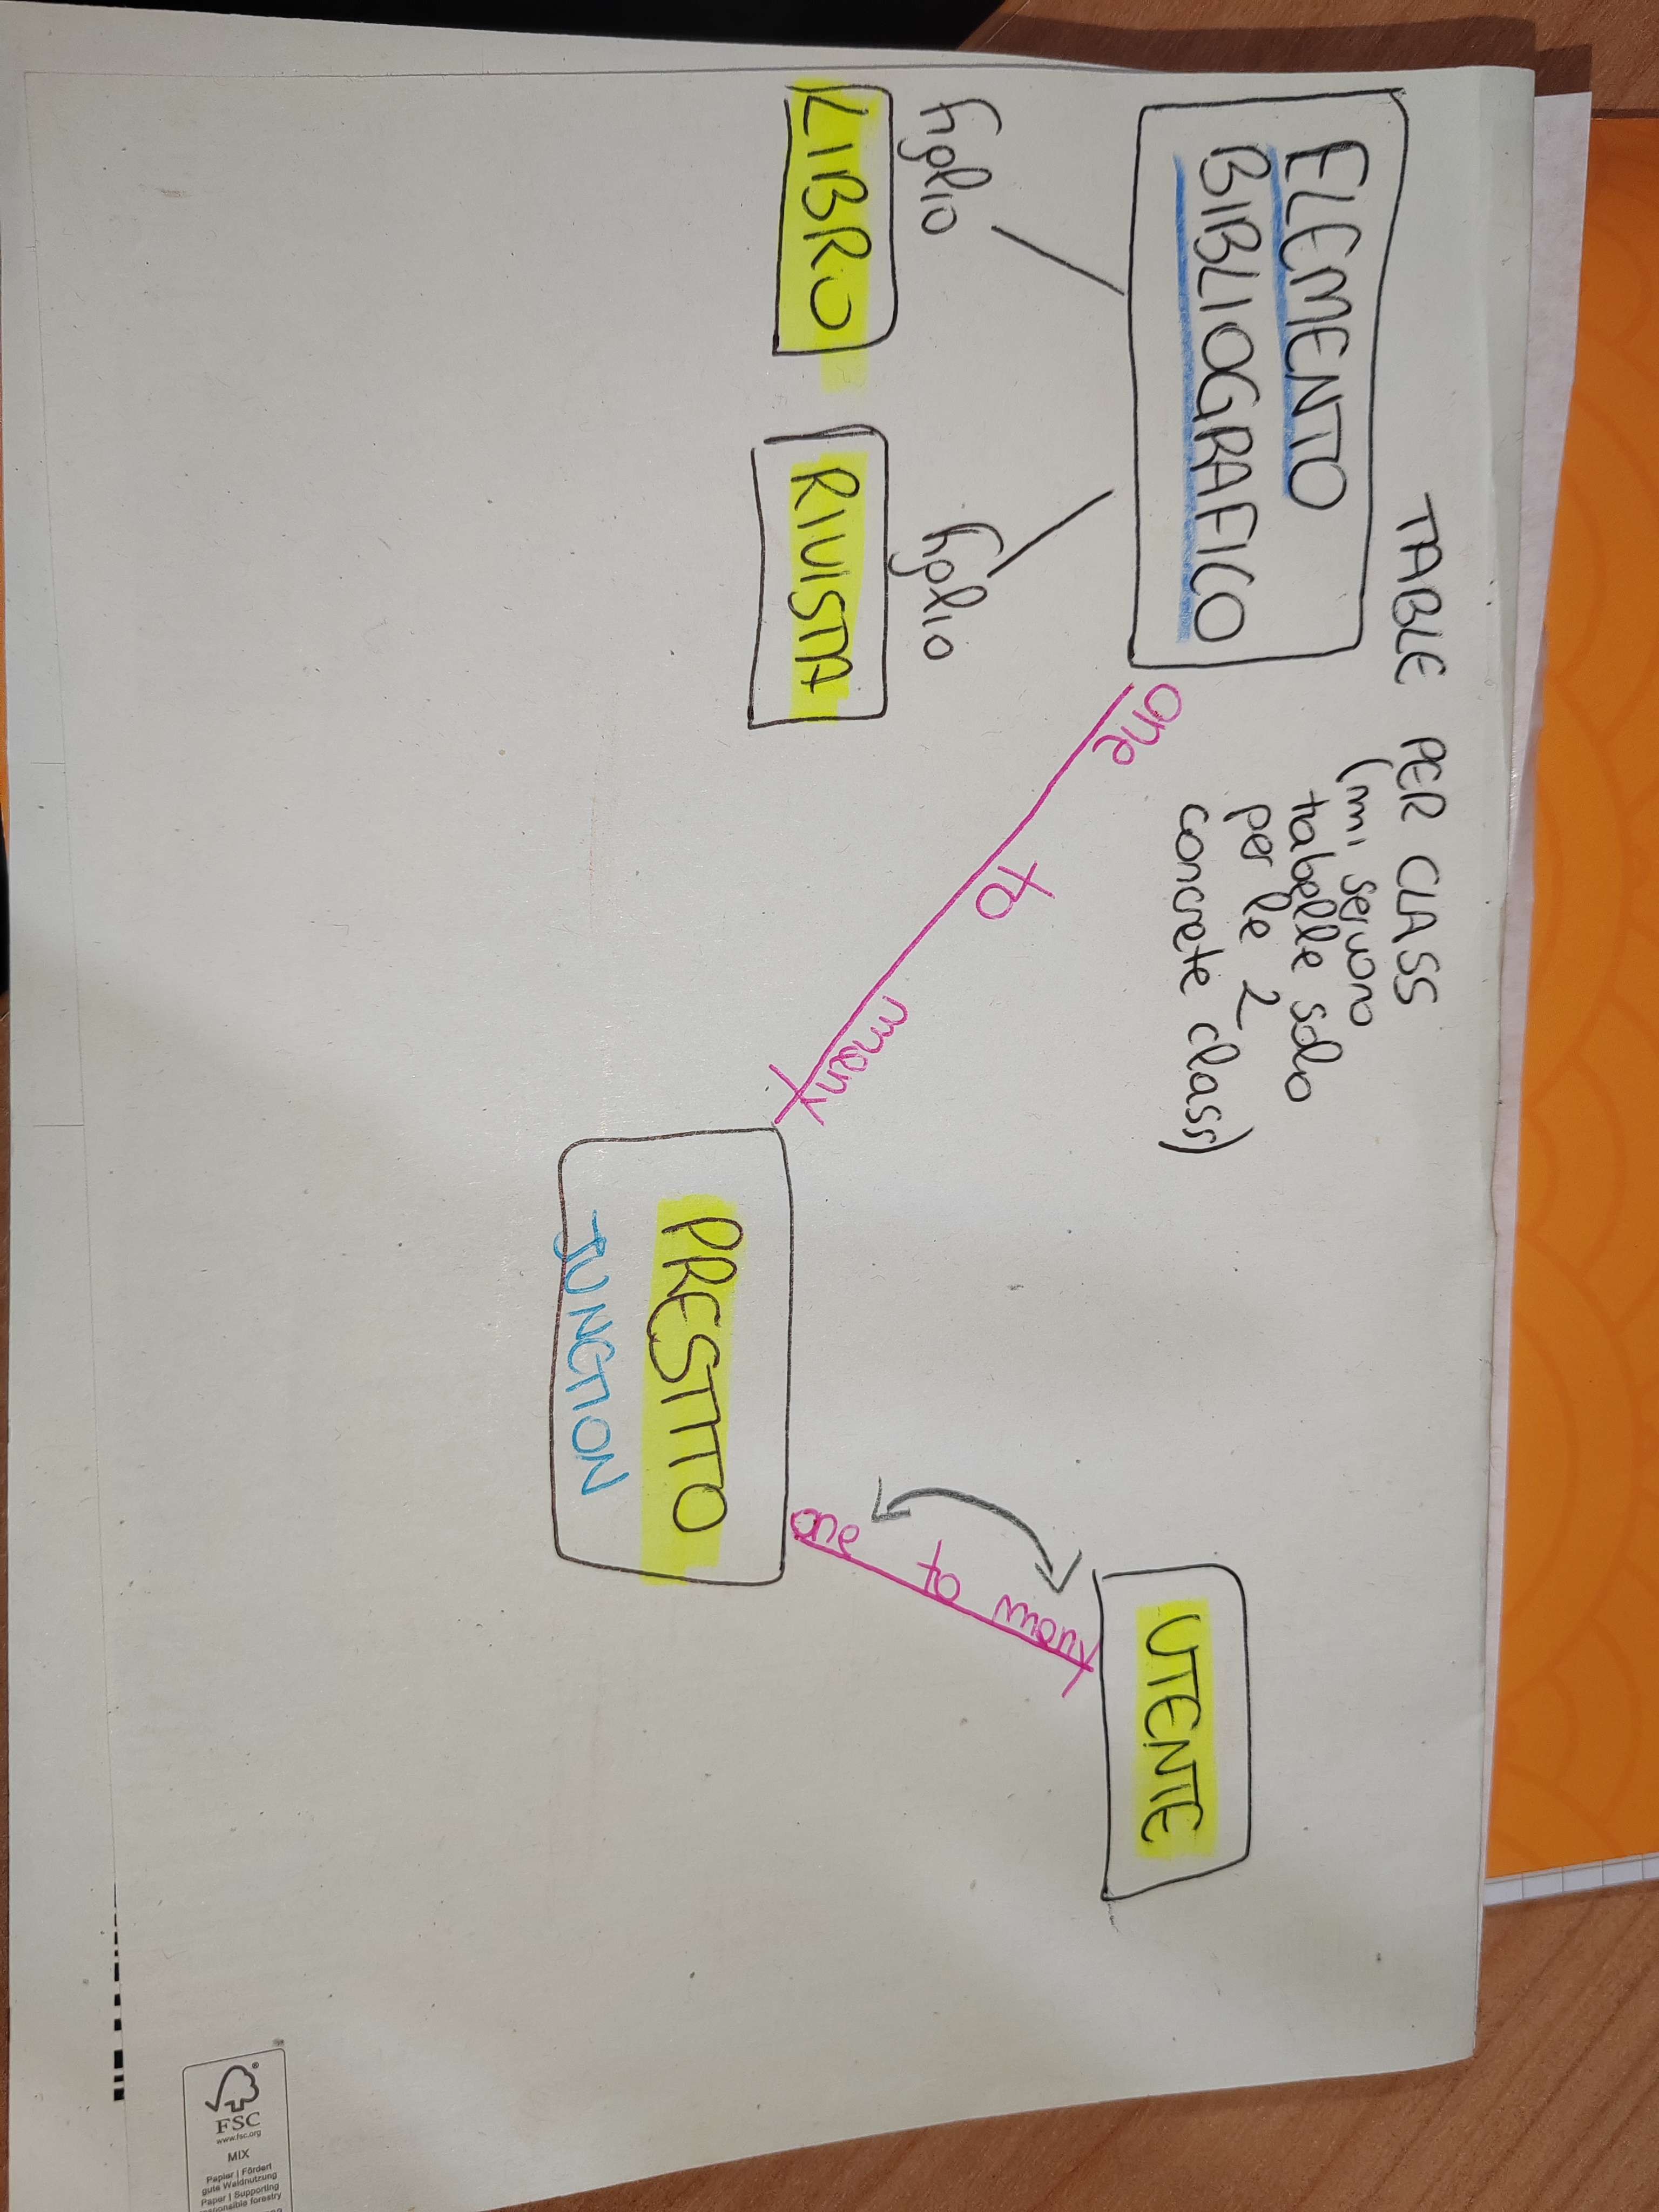 TABLE PER CLASS
(mi servono
tabelle solo
per le 2
concrete class)
ELEMENTO
BIBLIOGRAFICO
figlio
figlio
LIBRO
RIVISTA
one to many
PRESTITO
JUNCTION
one to many
UTENTE
FSC
www.fsc.org
MIX
Papier | Fördert
gute Waldnutzung
Paper | Supporting
responsible forestry